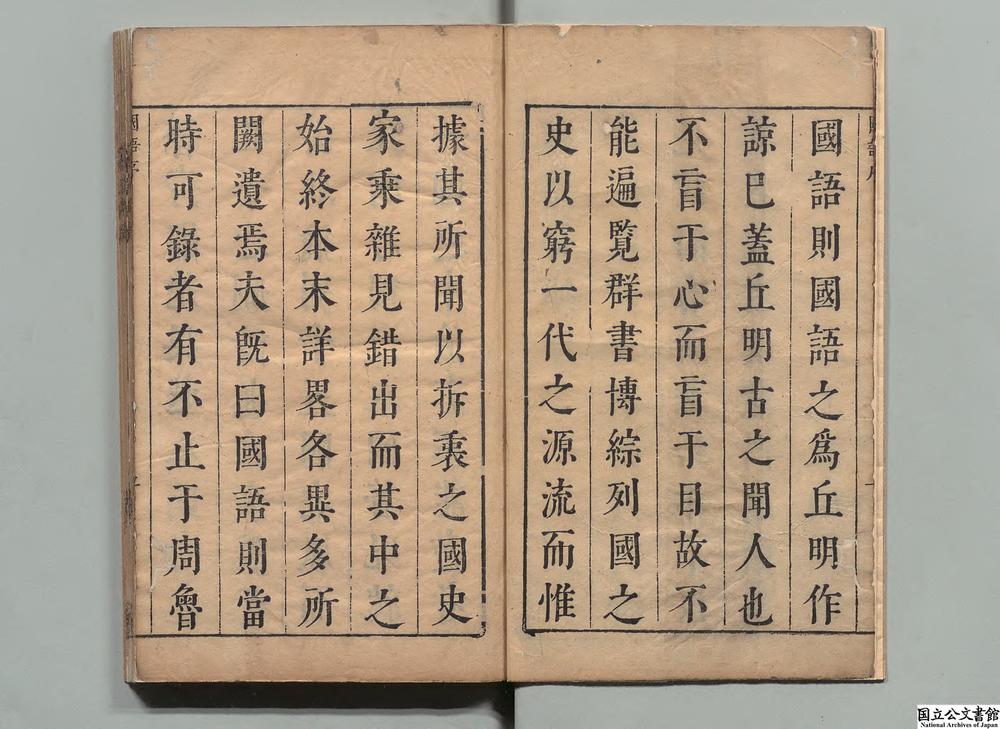 國語則國語之爲丘明作
諒已蓋丘明古之聞人也
不盲于心而盲于目故不
能遍覧群書博綜列國之
史以窮一代之源流而惟
據其所聞以拆衷之國史
家乘雜見錯出而其中之
始終本末詳畧各異多所
闕遺焉夫旣曰國語則當
時可錄者有不止于周魯
国立公文書館
National Archives of Japan